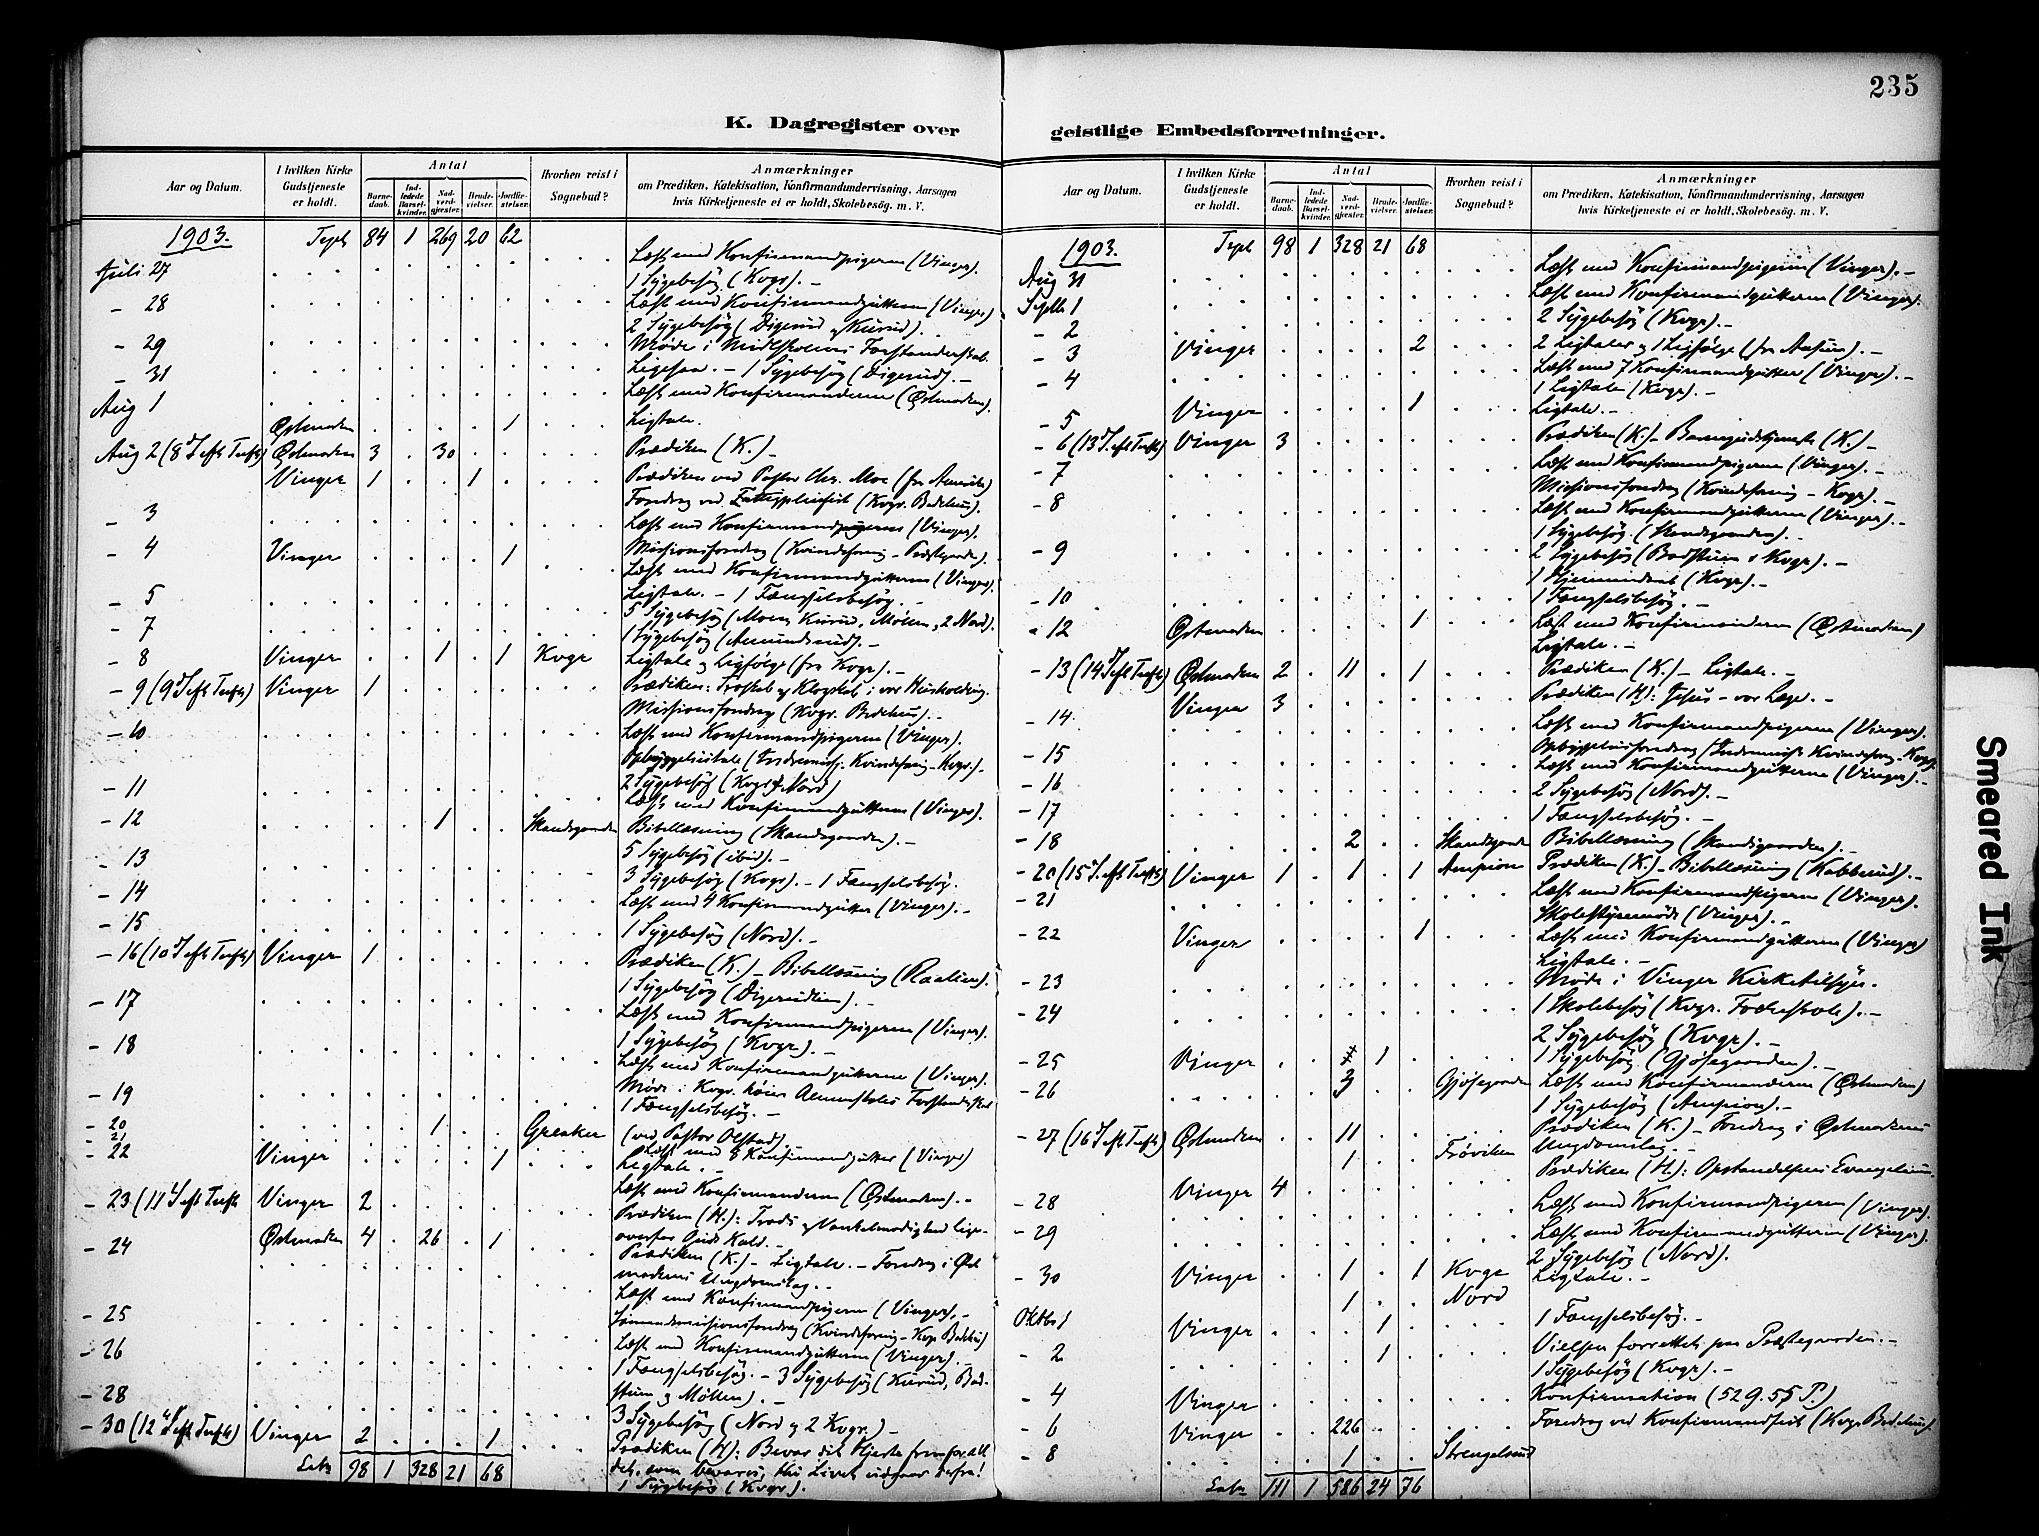 235
K. Dagregister over
geistlige Embedsforretninger.
Aar og Datum.
I hvilken Kirke Gudstjeneste er holdt.
Antal
Barnedaab.
Indledede Barselkvinder.
Nadverdgjester.
Brudevielser.
Jordfæstelser.
Hvorhen reist i Sognebud?
Anmærkninger
om Prædiken, Katekisation, Konfirmandundervisning, Aarsagen
hvis Kirketjeneste ei er holdt, Skolebesøg. m. V.
1903. 84 1 269 20 62
Juli 27 Læst med Konfirmandpigerne (Vinger).
1 Sygebesøg (Kvgr). -
- 28 Læst med Konfirmandgutterne (Vinger)
2 Sygebesøg (Digerud og Kurud).
- 29 Møde i Middelskolens Forstanderskab.
- 31 Ligesaa. - 1 Sygebesøg (Digerud). -
Aug 1 Læst med Konfirmanderne (Østmarken).
Østmarken 1 Ligtale.
Aug 2 (8 S. eft. Tref.) Østmarken 3 . 30 Prædiken (K.) -
Vinger 1 . . 1 Prædiken ved Pastor Chr. Moe (fra Amerika)
- 3 Læst med Konfirmandpigerne (Vinger).
Missionsforedrag (Kvindeforening - Præstegaarden).
- 4 Vinger 1 Læst med Konfirmandgutterne (Vinger).
Ligtale. - 1 Fængselsbesøg. -
- 5 5 Sygebesøg (Moen, Kurud, Møllen, 2 Nord).
- 7 1 Sygebesøg (Amundsrud). -
- 8 Vinger . . 1 . 1 Kvgr Ligtale og Ligfølge (fra Kvgr). -
- 9 (9 S. eft. Tref.) Vinger 1 Prædiken: Troskab og Klogskab i vor Husholdning.
Missionsforedrag (Kvgr. Bedehus). -
- 10 Læst med Konfirmandpigerne (Vinger).
Opbyggelsestale (Indremissj. Kvindeforening - Kvgr.) -
- 11 2 Sygebesøg (Kvgr & Nord)
Læst med Konfirmandgutterne (Vinger).
- 12 1 Skandsgaarden Bibellæsning (Skandsgaarden). -
5 Sygebesøg (ibid). -
- 13 3 Sygebesøg (Kvgr). - 1 Fængselsbesøg.
- 14 Læst med 4 Konfirmandgutter (Vinger). -
- 15 1 Sygebesøg (Nord). -
- 16 (10 S. eft. Tref.) Vinger 1 Prædiken (K.) - Bibellæsning (Raalien).
1 Sygebesøg (Digerudlien). -
- 17 Læst med Konfirmandpigerne (Vinger).
1 Sygebesøg (Kvgr). -
- 18 Læst med Konfirmandgutterne (Vinger).
- 19 Møde i Kvgr. høiere Almenskoles Forstanderskab
1 Fængselsbesøg. -
- 20 1 Greaker (ved Pastor Olstad). -
- 21 Læst med 8 Konfirmandgutter (Vinger)
- 22 Vinger 1 Ligtale. -
Læst med Konfirmanderne (Østmarken). -
- 23 (11 S. eft. Tref.) Vinger 2 Prædiken (H.): Trods og Vankelmodighed lige-
overfor Guds Kald. -
Østmarken 4 . 26 . 1 Prædiken (K.) - Ligtale. - Foredrag i Øst-
markens Ungdomslag. -
- 24 Læst med Konfirmandpigerne (Vinger). -
- 25 Læst med Konfirmandgutterne (Vinger). -
- 26 1 Fængselsbesøg. - 3 Sygebesøg (Kurud, Bad-
stuen og Møllen). -
- 28 3 Sygebesøg (Nord og 2 Kvgr.) -
- 30 (12 S. eft. Tref.) Vinger 2 . . . 1 Prædiken (H): Bevar dit Hjerte fremfor alt
det, som bevares, thi Livet udgaar derfra!
1 Sygebesøg (Kvgr).
Lats 98 1 328 21 68
Aar og Datum.
I hvilken Kirke Gudstjeneste er holdt.
Antal
Barnedaab.
Indledede Barselkvinder.
Nadverdgjester.
Brudevielser.
Jordfæstelser.
Hvorhen reist i Sognebud?
Anmærkninger
om Prædiken, Katekisation, Konfirmandundervisning, Aarsagen
hvis Kirketjeneste ei er holdt, Skolebesøg. m. V.
1903. 98 1 328 21 68
Aug 31 Læst med Konfirmandpigerne (Vinger). -
Septbr 1 Læst med Konfirmandgutterne (Vinger).
- 2 2 Sygebesøg (Kvgr). -
- 3 Vinger 2 2 Ligtaler og 1 Ligfølge (fra Aasum). -
- 4 Læst med 7 Konfirmandgutter (Vinger). -
1 Ligtale (Kvgr). -
- 5 Vinger 1 Ligtale. -
- 6 (13 S. eft. Tref.) Vinger 3 Prædiken (K.) - Barnegudstjeneste (K.) -
- 7 Læst med Konfirmandpigerne (Vinger). -
Missionsforedrag (Kvindeforening - Kvgr). -
- 8 Læst med Konfirmandgutterne (Vinger). -
1 Sygebesøg (Skandsgaarden). -
- 9 2 Sygebesøg (Badstuen & Kvgr). -
1 Hjemmedaab (Kvgr). -
- 10 1 Fængselsbesøg. -
- 12 Østmarken 1 Læst med Konfirmanderne (Østmarken)
Ligtale. -
- 13 (14 S. eft. Tref.) Østmarken 2 . 11 . 1 Prædiken (K.) - Ligtale. -
Vinger 3 Prædiken (H): Jesus - vor Læge. -
- 14 Læst med Konfirmandpigerne (Vinger).
- 15 Læst med Konfirmandgutterne (Vinger). -
- 16 2 Sygebesøg (Nord). -
- 17 1 Fængselsbesøg. -
- 18 2 Skandsgaarden Bibellæsning (Skandsgaarden). -
- 20 (15 S. eft. Tref.) Vinger 1 . 1 . 1 Ampion Prædiken (K.) - Bibellæsning (Kabberud). -
- 21 Læst med Konfirmandpigerne (Vinger).
Skolestyremøde (Vinger). -
- 22 Vinger 1 Læst med Konfirmandgutterne (Vinger)
Ligtale. -
- 23 Møde i Vinger Kirketilsyn.
- 24 1 Skolebesøg (Kvgr. Folkeskole). -
2 Sygebesøg (Kvgr). -
- 25 Vinger 1 1 Sygebesøg (Gjøsegaarden). -
- 26 3 Gjøsegaarden Læst med Konfirmanderne (Østmarken)
1 Sygebesøg (Ampion). -
- 27 (16 S. eft. Tref.) Østmarken 11 Prædiken (K.) - Foredrag i Østmarkens
1 Frøviken Ungdomslag. -
Vinger 4 Prædiken (H.): Opstandelsens Evangelium.
- 28 Læst med Konfirmandpigerne (Vinger).
- 29 Læst med Konfirmandgutterne (Vinger).
2 Sygebesøg (Nord).
- 30 Vinger 1 . 1 Kvgr Ligtale. -
1 Nord
Oktbr 1 Vinger 1 1 Fængselsbesøg. -
- 2 1 Vielsen forrettet paa Præstegaarden. -
1 Sygebesøg (Kvgr). -
- 4 Vinger Konfirmation (52 G. 55 P.)
- 6 Vinger 226 Foredrag ved Konfirmandfest (Kvgr Bedehus).
- 8 1 Strengelsrud
Lats 111 1 586 24 76
Smeared Ink